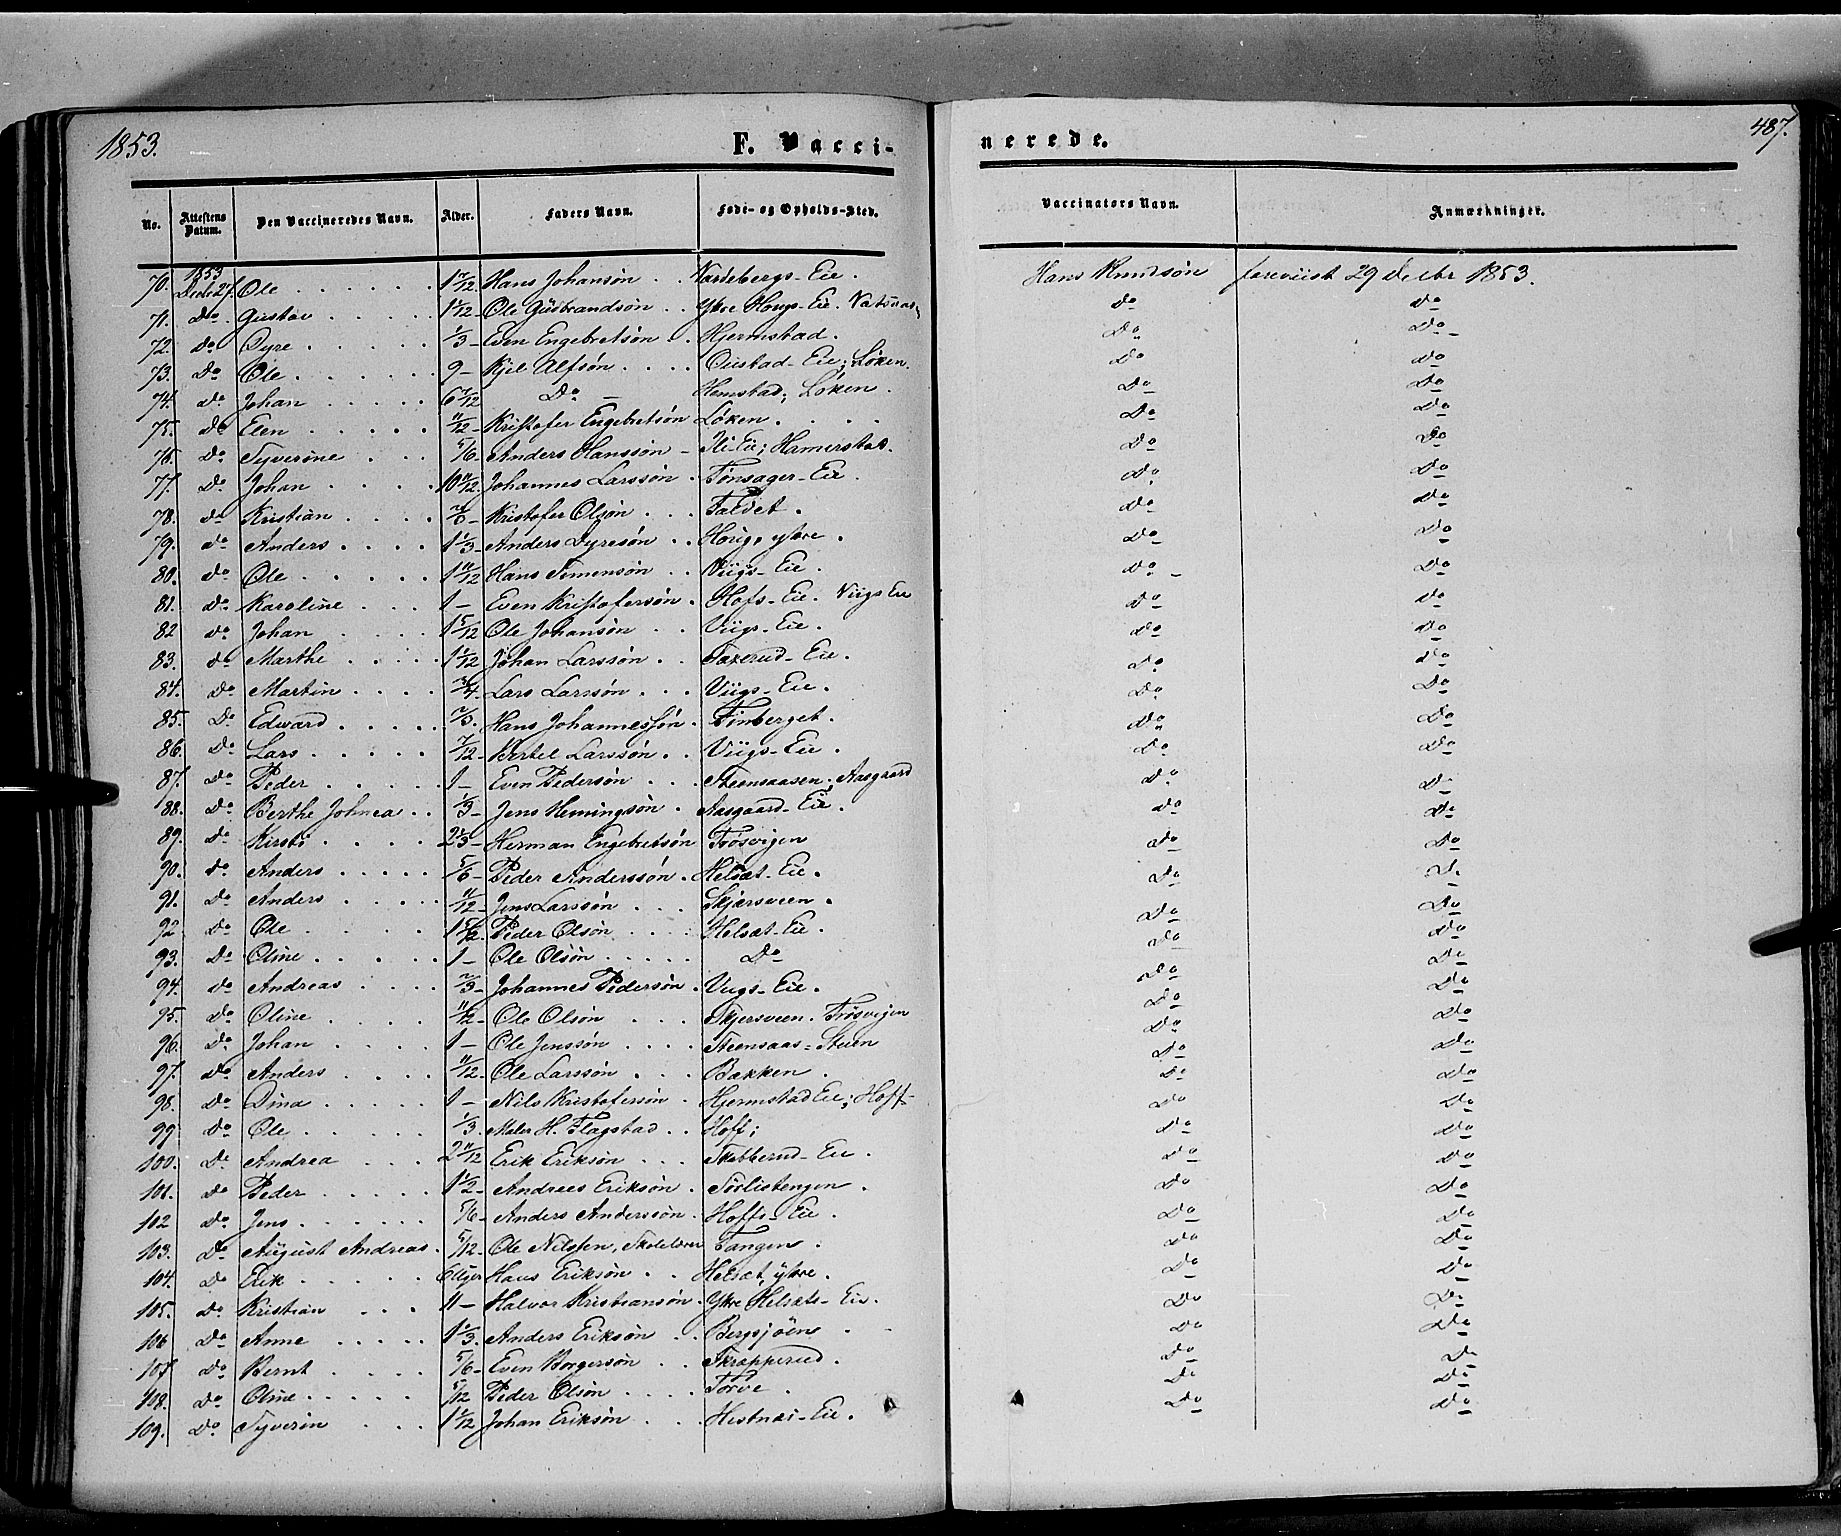 1853. F. Vacci- nerede. 487.
No. Attestens Datum. Den Vaccineredes Navn. Alder. Faders Navn. Føde- og Opholds-Sted. Vaccinators Navn. Anmærkninger.
70. 1853 Decbr 27. Ole 1 7/12 Hans Johansøn Eie. Hans Knudsøn foreviist 29 Decbr 1853.
71. Do Gustav Ole Gudbrandsøn Ytre Hougs-Eie. Do Do
72. Do Dyre 1/3 Even Engebretsøn Hjermstad. Do Do
73. Do Ole 9 Kjel Alfsøn Oustad-Eie; Løken. Do Do
74. Do Johan 6 7/12 Do Hemstad; Løken. Do Do
75. Do Elen 11/12 Kristofer Engebretsøn Løken. Do Do
76. Do Syverine 5/6 Anders Hanssøn Ili-Eie; Hamerstad. Do Do
77. Do Johan Johannes Larssøn Tønsager-Eie. Do Do
78. Do Kristian Kristofer Olsøn Faldet. Do Do
79. Do Anders 1 1/3 Anders Dyresøn Houg, ytre. Do Do
80. Do Ole 1 11/12 Hans Simensøn Viigs-Eie. Do Do
81. Do Karoline 1 Even Kristofersøn Hofs-Eie. Viigs Eie Do Do
82 Do Johan 1 5/12 Ole Johansøn Viigs-Eie. Do Do
83. Do Marthe 1 1/12 Johan Larssøn Faxerud-Eie. Do Do
84. Do Martin 3/4 Lars Larssøn Viigs-Eie. Do Do
85. Do Edward 2/3 Hans Johannessøn Finberget. Do Do
86. Do Lars 7/12 Bertel Larssøn Viigs-Eie. Do Do
87. Do Peder 1 Even Pedersøn Steensaasen; Aasgaard Do Do
88. Do Berthe Johnea 1/3 Jens Hemingsøn Aasgaard-Eie. Do Do
89. Do Kirsti 2 1/3 Herman Engebretsøn Frøsvigen Do Do
90. Do Anders 5/6 Peder Anderssøn Helsæt-Eie. Do Do
91. Do Anders 11/12 Jens Larssøn Skjærsveen. Do Do
92 Do Ole Peder Olsøn Helsæt-Eie. Do Do
93. Do Oline 1 Ole Olsøn Do Do Do
94. Do Andreas 2/3 Johannes Pedersøn Viigs-Eie. Do Do
95. Do Oline 11/12 Ole Olsøn Skjersveen. Frøsvigen Do Do
96. Do Johan 1 Ole Jenssøn Steensaas-Steen Do Do
97. Do Anders 11/12 Ole Larssøn Bakken. Do Do
98. Do Dina 1 Nils Kristofersøn Hjermstad Eie; Hoff Do Do
99 Do Ole 1/3 Maler H. Flagstad Hoff; Do Do
100. Do Andrea 2 11/12 Erik Eriksøn Skabberud-Eie. Do Do
101. Do Peder 1 1/2 Andreas Eriksøn Sørlistengen. Do Do
102 Do Jens 5/6 Anders Anderssøn Hoffs-Eie. Do Do
103. Do August Andreas 5/12 Ole Nilssen, Skolelærer Tangen. Do Do
104. Do Erik 6 Uger Hans Eriksøn Helsæt, ytre. Do Do
105. Do Kristian 11 Halvor Kristiansøn Ytre Helsæts-Eie. Do Do
106 Do Anne 1 1/3 Anders Eriksøn Bergsjøens Do Do
107 Do Bernt 5/6 Even Borgersøn Skrapperud. Do Do
108. Do Oline 5/12 Peder Olsøn Torve. Do Do
109. Do Syverin 1 1/12 Johan Eriksøn Hestnæs-Eie. Do Do